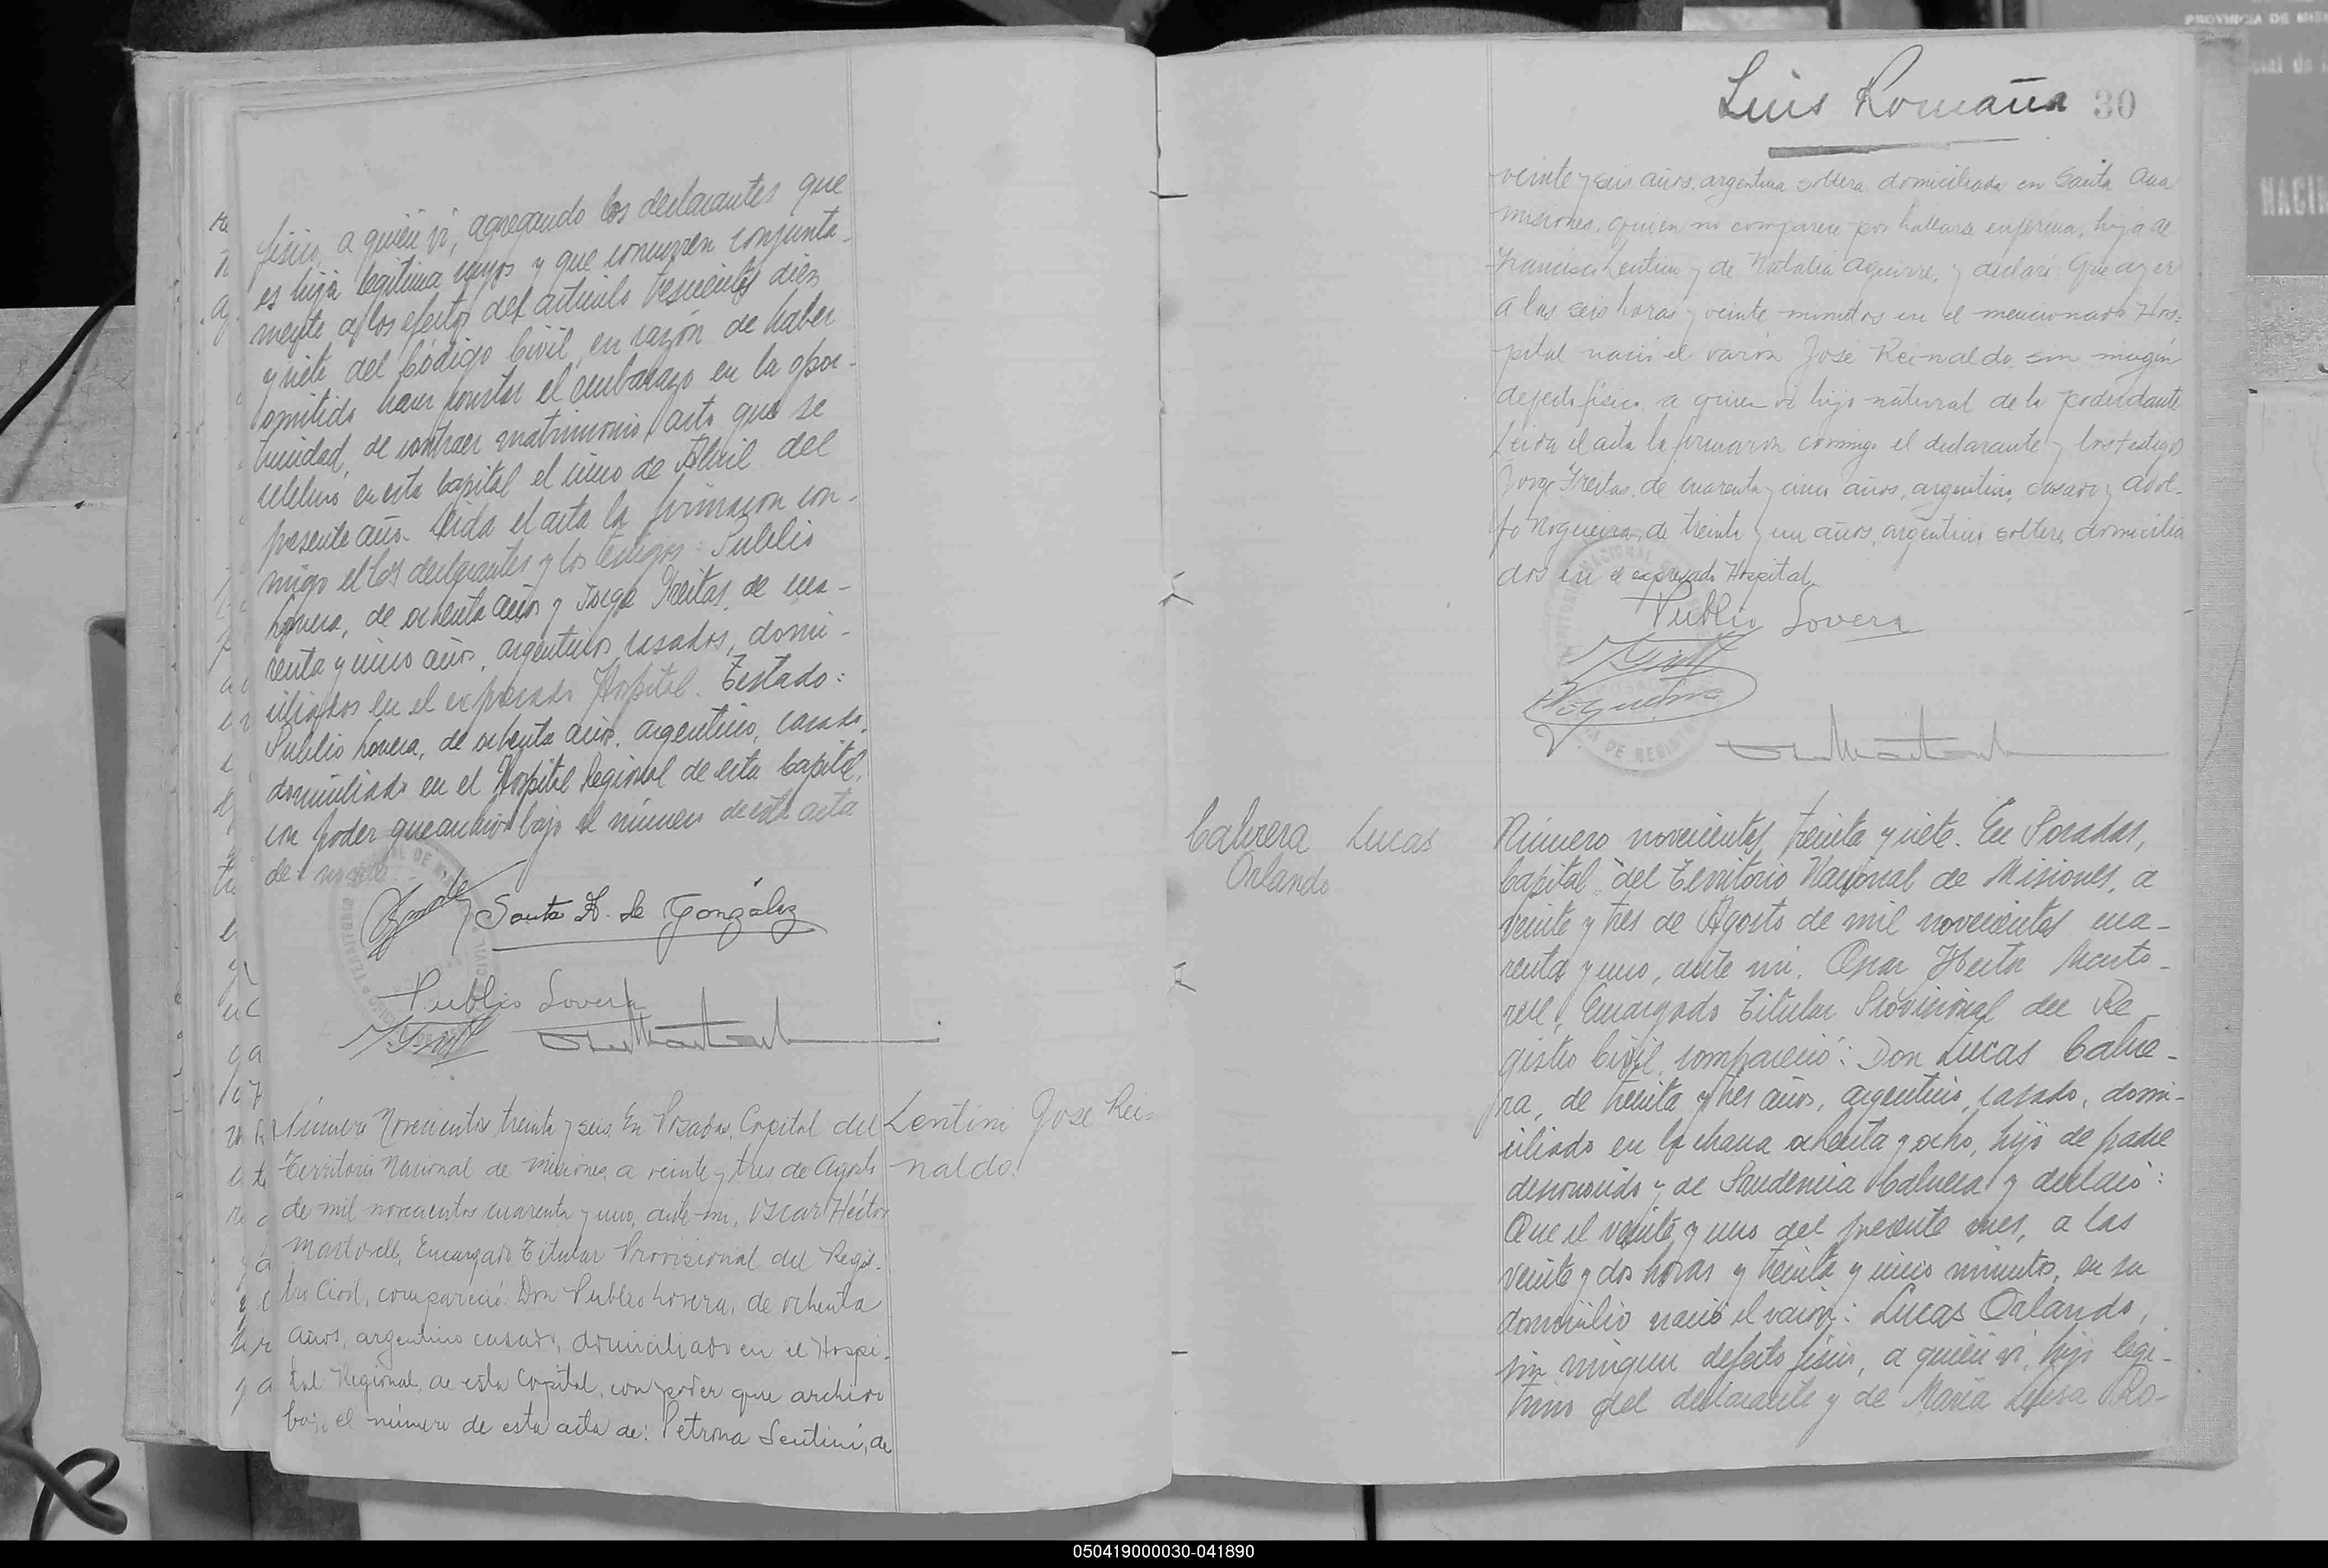 físico, a quien vi, agregando los declarantes que
es hija legítima suya y que concurren conjunta-
mente a los efectos del artículo trescientos diez
y siete del Código Civil, en razón de haber
omitido hacer constar el embarazo en la opor-
tunidad de contraer matrimonio, acto que se
celebró en esta Capital el cinco de Abril del
presente año. Leida el acta la firmaron con-
migo el los declarantes y los testigos: Publio
Lovera, de ochenta años y Jorge Freitas, de cua-
renta y cinco años, argentinos, casados, domi-
ciliados en el expresado Hospital. Testado:
Publio Lovera, de ochenta años, argentino, casado,
domiciliado en el Hospital Regional de esta Capital,
con poder que archivo bajo el número de esta acta
de:
Santa A. de González
Publio Lovera
Número Novecientos treinta y seis. En Posadas, Capital del
Territorio Nacional de Misiones, a veinte y tres de Agosto
de mil novecientos cuarenta y uno, ante mi, Oscar Héctor
Martorell, Encargado Titular Provisional del Regis-
tro Civil, compareció: Don Publio Lovera, de ochenta
años, argentino casado, domiciliado en el Hospi-
tal Regional, de esta Capital, con poder que archivo
bajo el número de esta acta de: Petrona Lentini, de
Lentini José Rei-
naldo.
Luis Romaña 30
veinte y seis años, argentina soltera domiciliada en Santa Ana
Misiones, quien no comparece por hallarse enferma, hija de
Francisco Lentini y de Natalia Aguirre, y declaró: Que ayer
a las seis horas y veinte minutos en el mencionado Hos-
pital nació el varón José Reinaldo, sin ningún
defecto físico, a quien vi hijo natural de la poderdante
Leida el acta la firmaron conmigo el declarante y los testigos
Jorge Freitas, de cuarenta y cinco años, argentino, casado y Adol-
fo Nogueira, de treinta y un años, argentino soltero, domicilia
dos en el expresado Hospital.
Publio Lovera
Cabrera Lucas
Orlando
Número novecientos treinta y siete. En Posadas,
Capital del Territorio Nacional de Misiones, a
veinte y tres de Agosto de mil novecientos cua-
renta y uno, ante mi, Oscar Héctor Marto-
rell, Encargado Titular Provisional del Re-
gistro Civil, compareció: Don Lucas Cabre-
ra, de treinta y tres años, argentino, casado, domi-
ciliado en la chacra ochenta y ocho, hijo de padre
desconocido y de Prudencia Cabrera y declaró:
Que el veinte y uno del presente mes, a las
veinte y dos horas y treinta y cinco minutos, en su
domicilio nació el varón: Lucas Orlando,
sin ningun defecto físico, a quien vi, hijo legí-
timo del declarante y de María Luisa Ro-
050419000030-041890